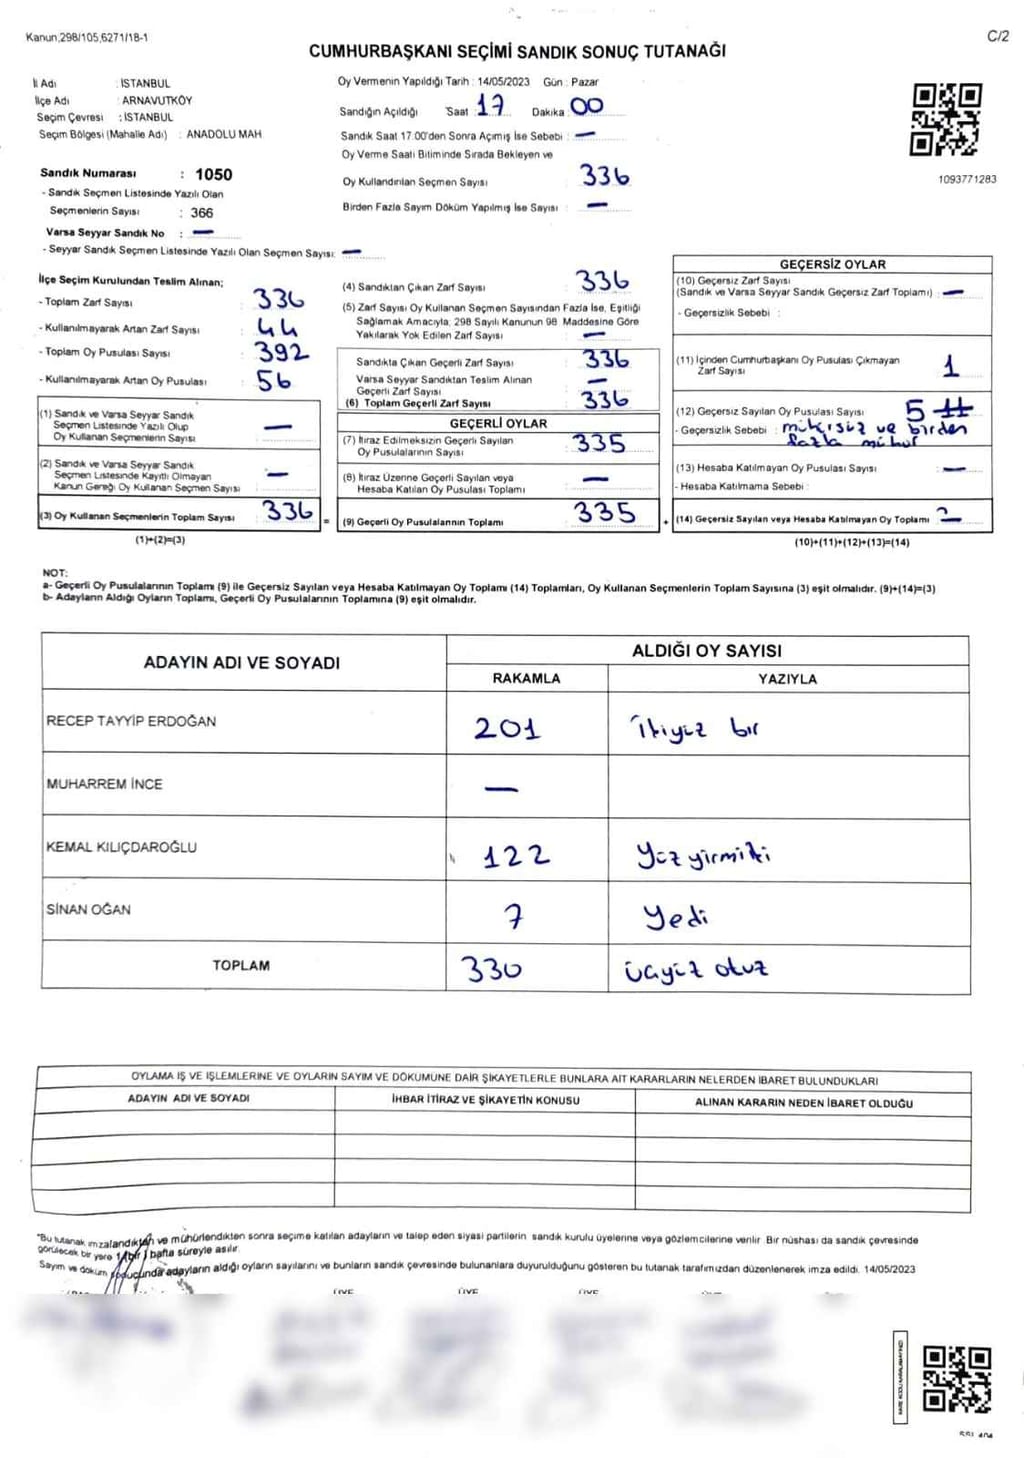 Kanun,298/105,6271/18-1
C/2
CUMHURBAŞKANI SEÇİMİ SANDIK SONUÇ TUTANAĞI
İl Adı : İSTANBUL
İlçe Adı : ARNAVUTKÖY
Seçim Çevresi : İSTANBUL
Seçim Bölgesi (Mahalle Adı) : ANADOLU MAH
Sandık Numarası : 1050
- Sandık Seçmen Listesinde Yazılı Olan
Seçmenlerin Sayısı : 366
Varsa Seyyar Sandık No : —
- Seyyar Sandık Seçmen Listesinde Yazılı Olan Seçmen Sayısı: —
Oy Vermenin Yapıldığı Tarih : 14/05/2023 Gün : Pazar
Sandığın Açıldığı Saat 17 Dakika : 00
Sandık Saat 17.00'den Sonra Açımış İse Sebebi : —
Oy Verme Saati Bitiminde Sırada Bekleyen ve
Oy Kullandırılan Seçmen Sayısı : 336
Birden Fazla Sayım Döküm Yapılmış İse Sayısı : —
1093771283
İlçe Seçim Kurulundan Teslim Alınan;
- Toplam Zarf Sayısı : 336
- Kullanılmayarak Artan Zarf Sayısı : 44
- Toplam Oy Pusulası Sayısı : 392
- Kullanılmayarak Artan Oy Pusulası : 56
(1) Sandık ve Varsa Seyyar Sandık
Seçmen Listesinde Yazılı Olup
Oy Kullanan Seçmenlerin Sayısı : —
(2) Sandık ve Varsa Seyyar Sandık
Seçmen Listesinde Kayıtlı Olmayan
Kanun Gereği Oy Kullanan Seçmen Sayısı : —
(3) Oy Kullanan Seçmenlerin Toplam Sayısı : 336 =
(1)+(2)=(3)
(4) Sandıktan Çıkan Zarf Sayısı : 336
(5) Zarf Sayısı Oy Kullanan Seçmen Sayısından Fazla İse, Eşitliği
Sağlamak Amacıyla, 298 Sayılı Kanunun 98 Maddesine Göre
Yakılarak Yok Edilen Zarf Sayısı : —
Sandıkta Çıkan Geçerli Zarf Sayısı : 336
Varsa Seyyar Sandıktan Teslim Alınan
Geçerli Zarf Sayısı : —
(6) Toplam Geçerli Zarf Sayısı : 336
GEÇERLİ OYLAR
(7) İtiraz Edilmeksizin Geçerli Sayılan
Oy Pusulalarının Sayısı : 335
(8) İtiraz Üzerine Geçerli Sayılan veya
Hesaba Katılan Oy Pusulası Toplamı : —
(9) Geçerli Oy Pusulalarının Toplamı : 335 +
GEÇERSİZ OYLAR
(10) Geçersiz Zarf Sayısı
(Sandık ve Varsa Seyyar Sandık Geçersiz Zarf Toplamı) : —
- Geçersizlik Sebebi :
(11) İçinden Cumhurbaşkanı Oy Pusulası Çıkmayan
Zarf Sayısı : 1
(12) Geçersiz Sayılan Oy Pusulası Sayısı : 5
- Geçersizlik Sebebi : mühürsüz ve birden
fazla mühür
(13) Hesaba Katılmayan Oy Pusulası Sayısı : —
- Hesaba Katılmama Sebebi :
(14) Geçersiz Sayılan veya Hesaba Katılmayan Oy Toplamı :
(10)+(11)+(12)+(13)=(14)
NOT:
a- Geçerli Oy Pusulalarının Toplamı (9) ile Geçersiz Sayılan veya Hesaba Katılmayan Oy Toplamı (14) Toplamları, Oy Kullanan Seçmenlerin Toplam Sayısına (3) eşit olmalıdır. (9)+(14)=(3)
b- Adayların Aldığı Oyların Toplamı, Geçerli Oy Pusulalarının Toplamına (9) eşit olmalıdır.
ADAYIN ADI VE SOYADI
ALDIĞI OY SAYISI
RAKAMLA YAZIYLA
RECEP TAYYİP ERDOĞAN 201 İkiyüz bir
MUHARREM İNCE —
KEMAL KILIÇDAROĞLU 122 Yüz yirmiiki
SİNAN OĞAN 7 Yedi
TOPLAM 330 üçyüz otuz
OYLAMA İŞ VE İŞLEMLERİNE VE OYLARIN SAYIM VE DÖKÜMÜNE DAİR ŞİKAYETLERLE BUNLARA AİT KARARLARIN NELERDEN İBARET BULUNDUKLARI
ADAYIN ADI VE SOYADI İHBAR İTİRAZ VE ŞİKAYETİN KONUSU ALINAN KARARIN NEDEN İBARET OLDUĞU
"Bu tutanak imzalandıktan ve mühürlendikten sonra seçime katılan adayların ve talep eden siyasi partilerin sandık kurulu üyelerine veya gözlemcilerine verilir. Bir nüshası da sandık çevresinde
görülecek bir yere 1 (bir) hafta süreyle asılır.
Sayım ve döküm sonucunda adayların aldığı oyların sayılarını ve bunların sandık çevresinde bulunanlara duyurulduğunu gösteren bu tutanak tarafımızdan düzenlenerek imza edildi. 14/05/2023
ÜYE ÜYE ÜYE ÜYE